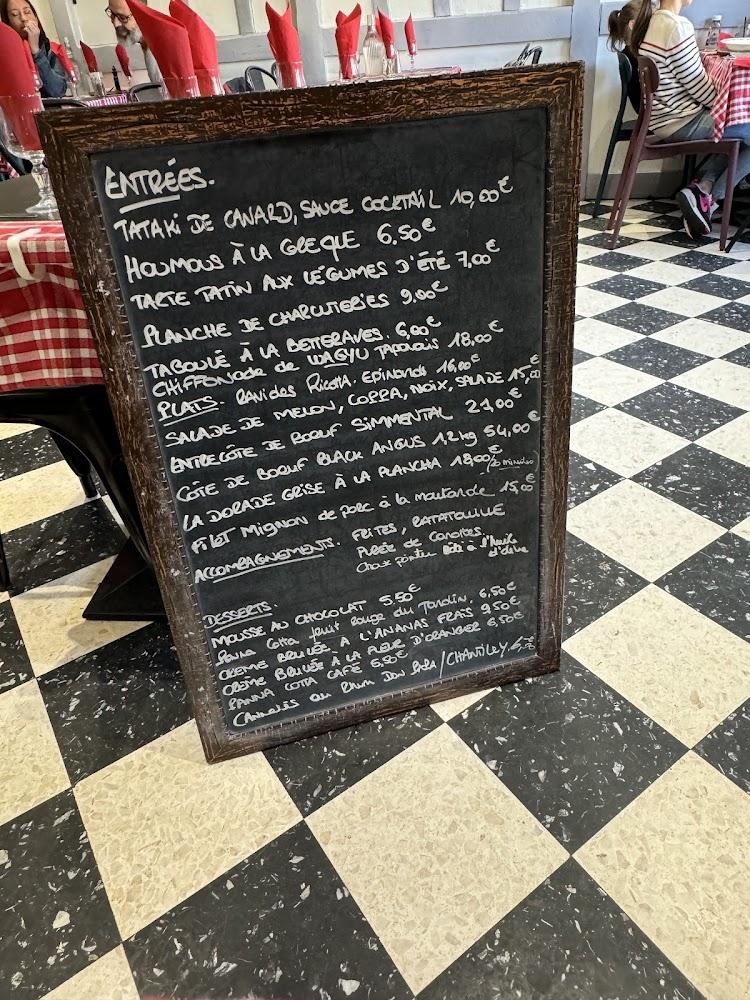 ENTRÉES.
TATAKI DE CANARD, SAUCE COCKTAIL 10,00€
HOUMOUS À LA GREQUE 6.50€
TARTE TATIN AUX LÉGUMES D'ÉTÉ 7,00€
PLANCHE DE CHARCUTERIES 9,00€
TABOULÉ À LA BETTERAVES. 6,00€
CHIFFONADE de WAGYU JAPONAIS 18,00€
PLATS. RAVIOLES RICOTTA. EPINARDS 16,00€
SALADE DE MELON, COPPA, NOIX, SALADE 15,00€
ENTRECÔTE DE BOEUF SIMMENTAL 21,00€
CÔTE DE BOEUF BLACK ANGUS 1.2 kg 54,00€
LA DORADE GRISE À LA PLANCHA 18,00€/20 minutes
FILET MIGNON de porc à la moutarde 15,00€
ACCOMPAGNEMENTS. FRITES, RATATOUILLE
PURÉE de CAROTTES.
Choux pointu à l'huile d'olive
DESSERTS.
MOUSSE AU CHOCOLAT 5.50€
Panna Cotta fruit Rouge du Jardin. 6,50€
CREME BRULÉE À L'ANANAS FRAIS 9.50€
CRÈME BRULÉE À LA FLEUR D'ORANGER 6,50€
PANNA COTTA CAFÉ 6,50€
CANNELÉS au Rhum Don / CHANTILLY